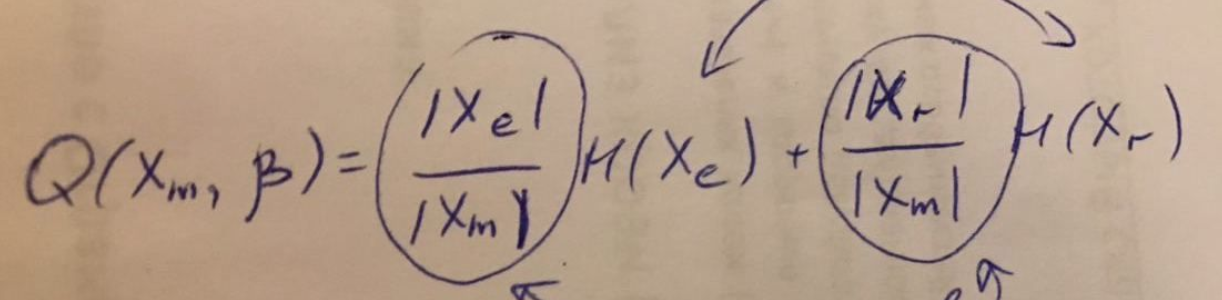 Q(Xm, β) = |Xe| / |Xm| H(Xe) + |Xr| / |Xm| H(Xr)